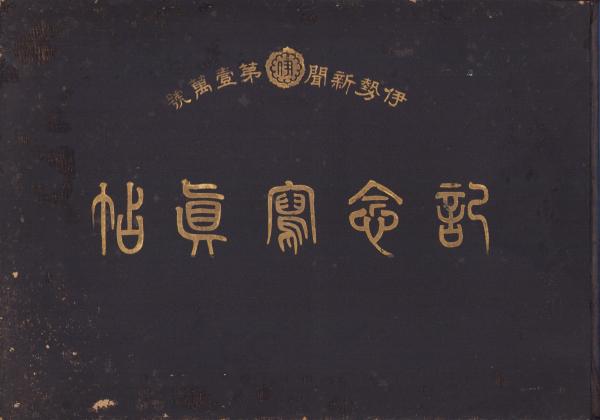 伊勢新聞第壹萬號
記念寫眞帖